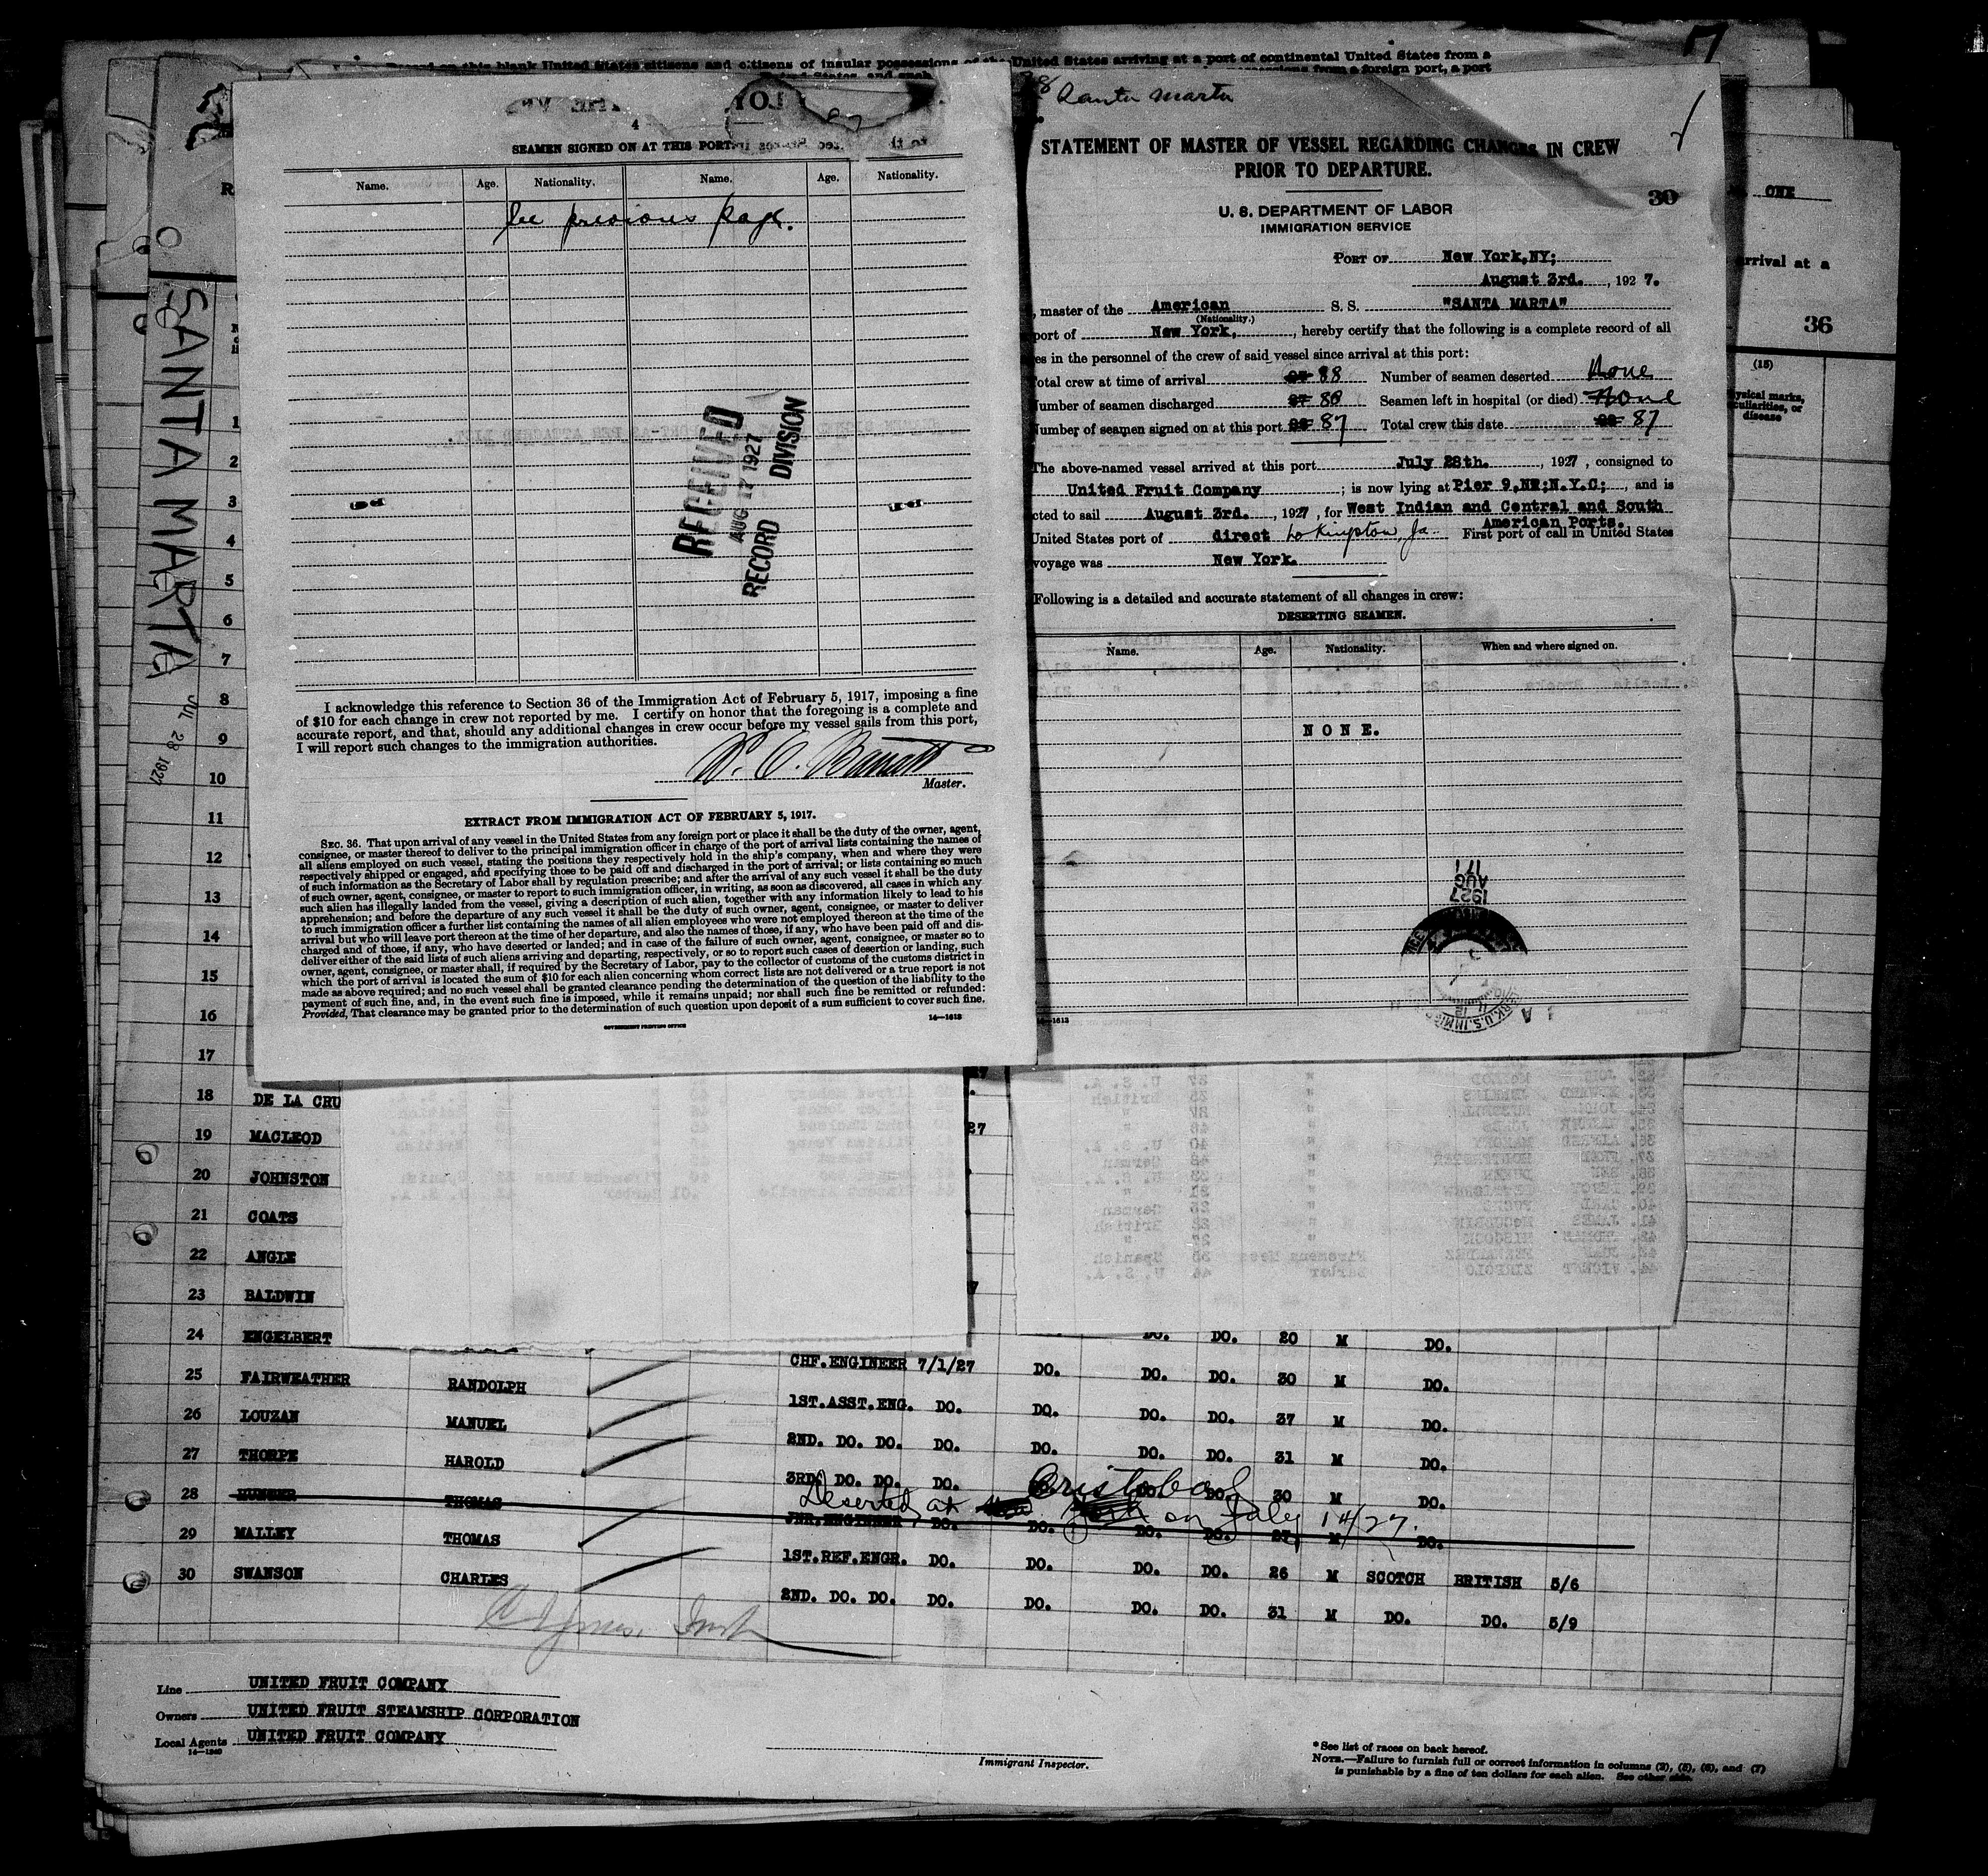 Record on this blank United States citizens and citizens of insular possessions of the United States arriving at a port of continental United States from a
from a foreign port, a port
4
SEAMEN SIGNED ON AT THIS PORT
Name. Age. Nationality. Name. Age. Nationality.
See previous page.
RECEIVED
AUG 17 1927
RECORD DIVISION
I acknowledge this reference to Section 36 of the Immigration Act of February 5, 1917, imposing a fine
of $10 for each change in crew not reported by me. I certify on honor that the foregoing is a complete and
accurate report, and that, should any additional changes in crew occur before my vessel sails from this port,
I will report such changes to the immigration authorities.
Master.
EXTRACT FROM IMMIGRATION ACT OF FEBRUARY 5, 1917.
SEC. 36. That upon arrival of any vessel in the United States from any foreign port or place it shall be the duty of the owner, agent,
consignee, or master thereof to deliver to the principal immigration officer in charge of the port of arrival lists containing the names of
all aliens employed on such vessel, stating the positions they respectively hold in the ship's company, when and where they were
respectively shipped or engaged, and specifying those to be paid off and discharged in the port of arrival; or lists containing so much
of such information as the Secretary of Labor shall by regulation prescribe; and after the arrival of any such vessel it shall be the duty
of such owner, agent, consignee, or master to report to such immigration officer, in writing, as soon as discovered, all cases in which any
such alien has illegally landed from the vessel, giving a description of such alien, together with any information likely to lead to his
apprehension; and before the departure of any such vessel it shall be the duty of such owner, agent, consignee, or master to deliver
to such immigration officer a further list containing the names of all alien employees who were not employed thereon at the time of the
arrival but who will leave port thereon at the time of her departure, and also the names of those, if any, who have been paid off and dis-
charged and of those, if any, who have deserted or landed; and in case of the failure of such owner, agent, consignee, or master so to
deliver either of the said lists of such aliens arriving and departing, respectively, or so to report such cases of desertion or landing, such
owner, agent, consignee, or master shall, if required by the Secretary of Labor, pay to the collector of customs of the customs district in
which the port of arrival is located the sum of $10 for each alien concerning whom correct lists are not delivered or a true report is not
made as above required; and no such vessel shall be granted clearance pending the determination of the question of the liability to the
payment of such fine, and, in the event such fine is imposed, while it remains unpaid; nor shall such fine be remitted or refunded:
Provided, That clearance may be granted prior to the determination of such question upon deposit of a sum sufficient to cover such fine.
GOVERNMENT PRINTING OFFICE 14—1613
Santa Marta
STATEMENT OF MASTER OF VESSEL REGARDING CHANGES IN CREW
PRIOR TO DEPARTURE.
30
U. S. DEPARTMENT OF LABOR
IMMIGRATION SERVICE
PORT OF New York,NY;
August 3rd. , 1927.
, master of the American S. S. "SANTA MARTA"
(Nationality.)
port of New York, , hereby certify that the following is a complete record of all
es in the personnel of the crew of said vessel since arrival at this port:
Total crew at time of arrival 88 Number of seamen deserted None
Number of seamen discharged 88 Seamen left in hospital (or died) None
Number of seamen signed on at this port 87 Total crew this date 87
The above-named vessel arrived at this port July 28th. , 1927 , consigned to
United Fruit Company ; is now lying at Pier 9,NR;N.Y.C; , and is
cted to sail August 3rd. , 1927 , for West Indian and Central and South
American Ports.
United States port of direct to Kingston, Ja. First port of call in United States
voyage was New York.
Following is a detailed and accurate statement of all changes in crew:
DESERTING SEAMEN.
Name. Age. Nationality. When and where signed on.
NONE.
1927
AUG
17
ONE
rrival at a
36
(15)
ysical marks,
culiarities, or
disease
SANTA MARTA
JUL 28 1927
1
2
3
4
5
6
7
8
9
10
11
12
13
14
15
16
17
18 DE LA CRU
19 MACLEOD
20 JOHNSTON
21 COATS
22 ANGLE
23 BALDWIN
24 ENGELBERT DO. DO. 20 M DO.
25 FAIRWEATHER RANDOLPH CHF.ENGINEER 7/1/27 DO. DO. DO. 30 M DO.
26 LOUZAN MANUEL 1ST.ASST.ENG. DO. DO. DO. DO. 37 M DO.
27 THORPE HAROLD 2ND. DO. DO. DO. DO. DO. DO. 31 M DO.
28 THOMAS 3RD. DO. DO. DO. DO. DO. 30 M DO.
Deserted at Cristobal on July 14/27.
29 MALLEY THOMAS JNR.ENGINEER DO. DO. DO. DO. 27 M DO.
30 SWANSON CHARLES 1ST.REF.ENGR. DO. DO. DO. DO. 26 M SCOTCH BRITISH 5/6
2ND. DO. DO. DO. DO. DO. DO. 31 M DO. DO. 5/9
Line UNITED FRUIT COMPANY
Owners UNITED FRUIT STEAMSHIP CORPORATION
Local Agents UNITED FRUIT COMPANY
14—1240
Immigrant Inspector.
*See list of races on back hereof.
NOTE.—Failure to furnish full or correct information in columns (2), (5), (6), and (7)
is punishable by a fine of ten dollars for each alien. See other side.